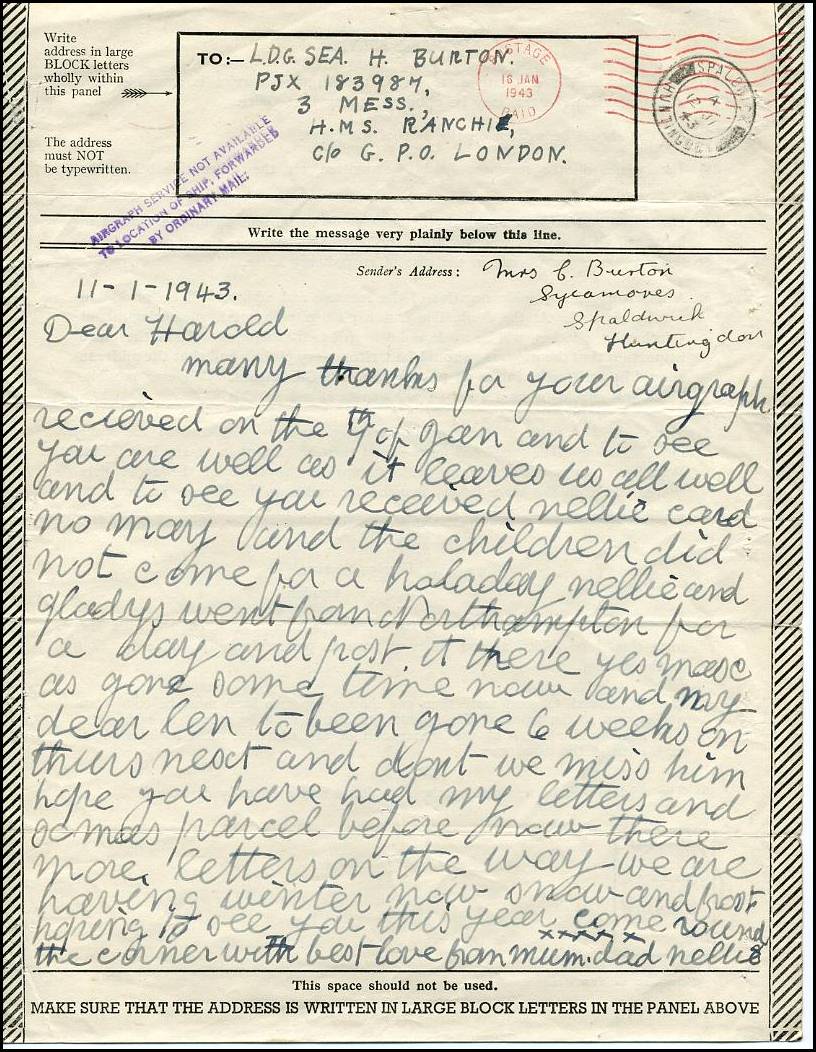 Write
address in large
BLOCK letters
wholly within
this panel
The address
must NOT
be typewritten.
TO:— L.D.G. SEA. H. BURTON.
PJX 183987,
3 MESS.,
H.M.S. RANCHIE,
C/o G. P.O. LONDON.
POSTAGE
18 JAN
1943
PAID
SPALDWICK
HUNTINGDON
AIRGRAPH SERVICE NOT AVAILABLE
TO LOCATION OF SHIP. FORWARDED
BY ORDINARY MAIL.
Write the message very plainly below this line.
Sender's Address: Mrs C. Burton
Sycamores
Spaldwick
Huntingdon
11-1-1943.
Dear Harold
many thanks for your airgraph
recieved on the of Jan and to see
you are well as it leaves us all well
and to see you received nellie card
no may and the children did
not come for a holaday nellie and
gladys went from Northampton for
a day and post it there yes
as gone some time now and my
dear len to been gone 6 weeks on
thurs next and dont we miss him
hope you have had my letters and
xmas parcel before now there
more letters on the way we are
having winter now snow and frost
hoping to see you this year come round
xxxxx
the corner with best love from mum. dad nellie
This space should not be used.
MAKE SURE THAT THE ADDRESS IS WRITTEN IN LARGE BLOCK LETTERS IN THE PANEL ABOVE